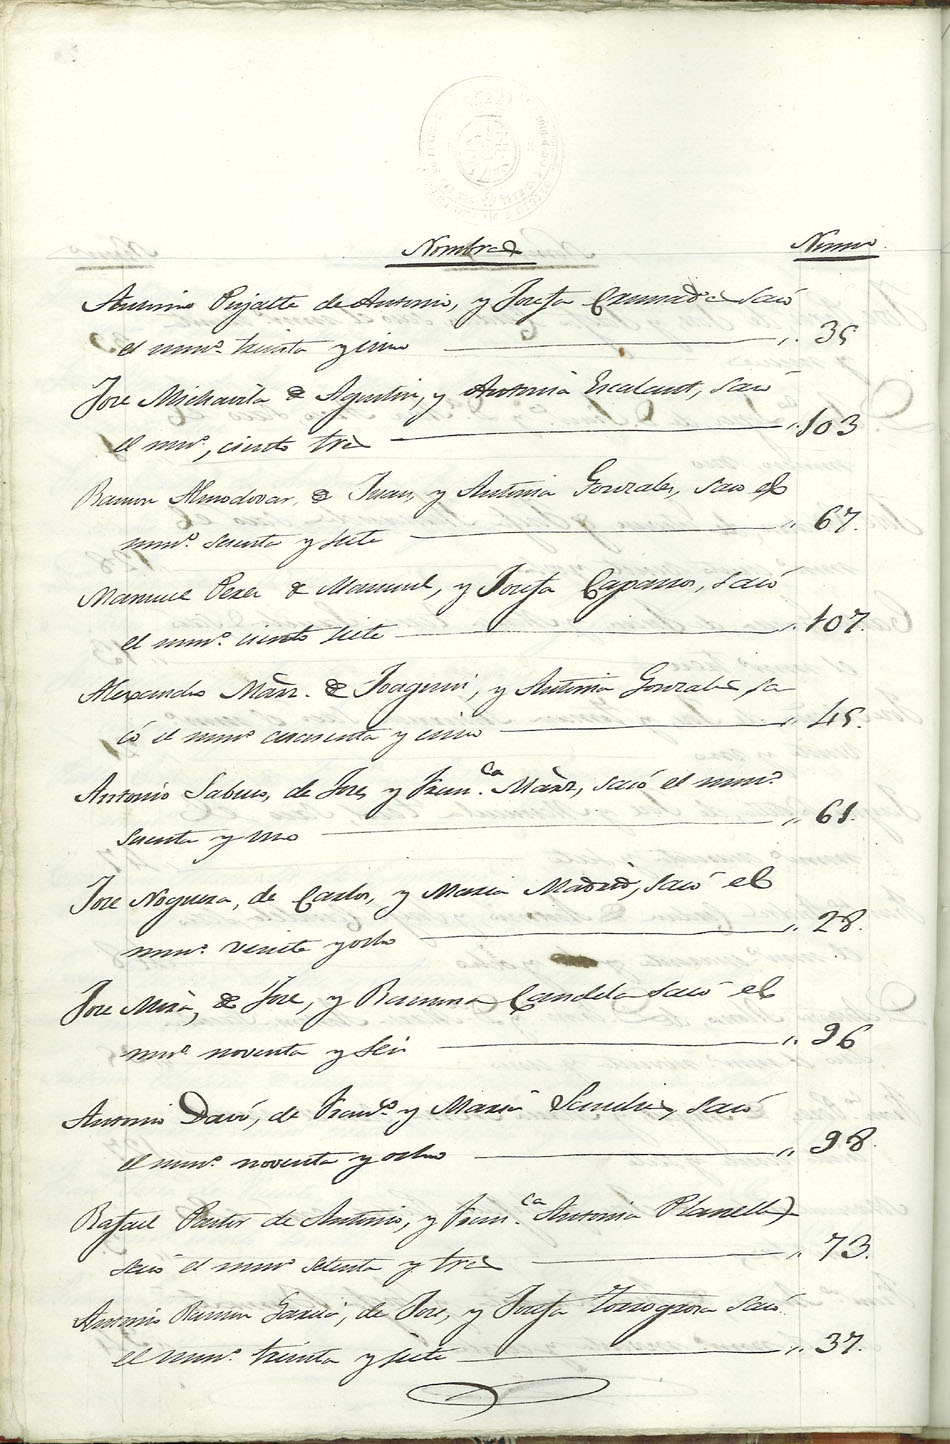 Nombres Numº
Antonio Pujalte de Antonio, y Josefa sacó
el numº treinta y cinco ,, 35
Jose Michavila de Agustin, y Antonia Escalant, sacó
el numº, ciento tres ,, 103
Ramon Almodovar de Juan, y Antonia Gonzales, saco el
numº sesenta y siete ,, 67.
Manuel Perez de Manuel, y Josefa Caparros, sacó
el numº ciento siete ,, 107.
Alexandro Mañz. de Joaquin, y Antonia Gonzales sa
có el numº cuarenta y cinco ,, 45.
Antonio de Jose, y Franca. Mañz, sacó el numº
sesenta y uno ,, 61.
Jose Noguera, de Carlos, y Maria Madrid, sacó el
numº veinte y ocho ,, 28.
Jose Mira, de Jose, y Ramona Candela sacó el
numº noventa y seis ,, 96
Antonio Davó, de Franco y Maria Sanchez, sacó
el numº noventa y ocho ,, 98.
Rafael Pastor de Antonio, y Franca. Antonia Planells
sacó el numº setenta y tres ,, 73.
Antonio Ramon Garcia, de Jose, y Josefa Torregrosa sacó
el numº treinta y siete ,, 37.